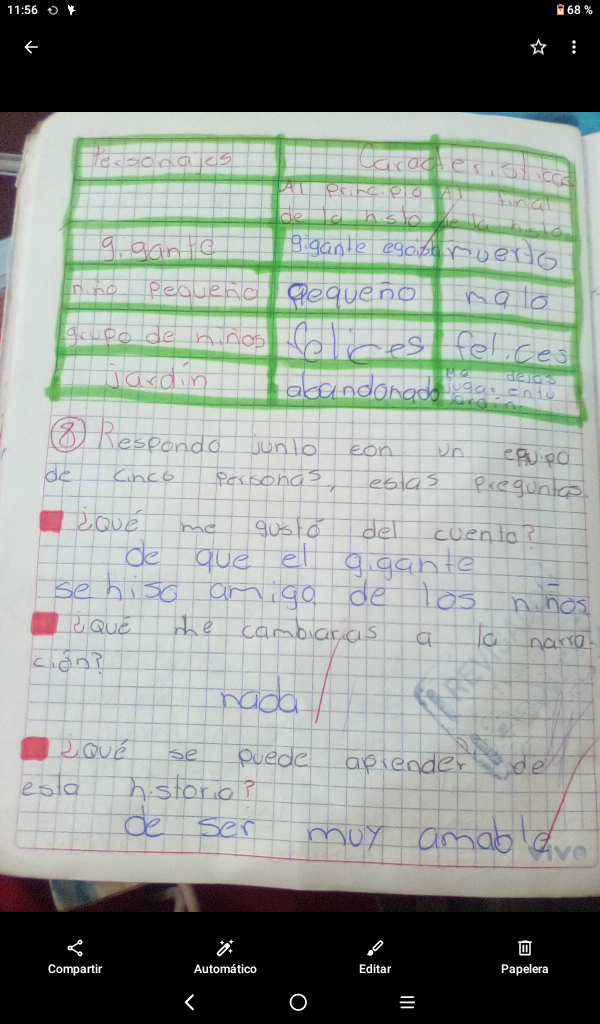 11:56
68 %
Personajes Características
Al principio Al final
de la histo de la histo
gigante gigante muerto
niño pequeño pequeño malo
grupo de niños felices felices
jardín abandonado
8 Respondo junto con un equipo
de cinco personas, estas preguntas.
¿Qué me gustó del cuento?
de que el gigante
se hiso amiga de los niños
¿Qué me cambiarias a la narra-
ción?
nada
¿Qué se puede aprender de
esta historia?
de ser muy amable
vivo
Compartir Automático Editar Papelera